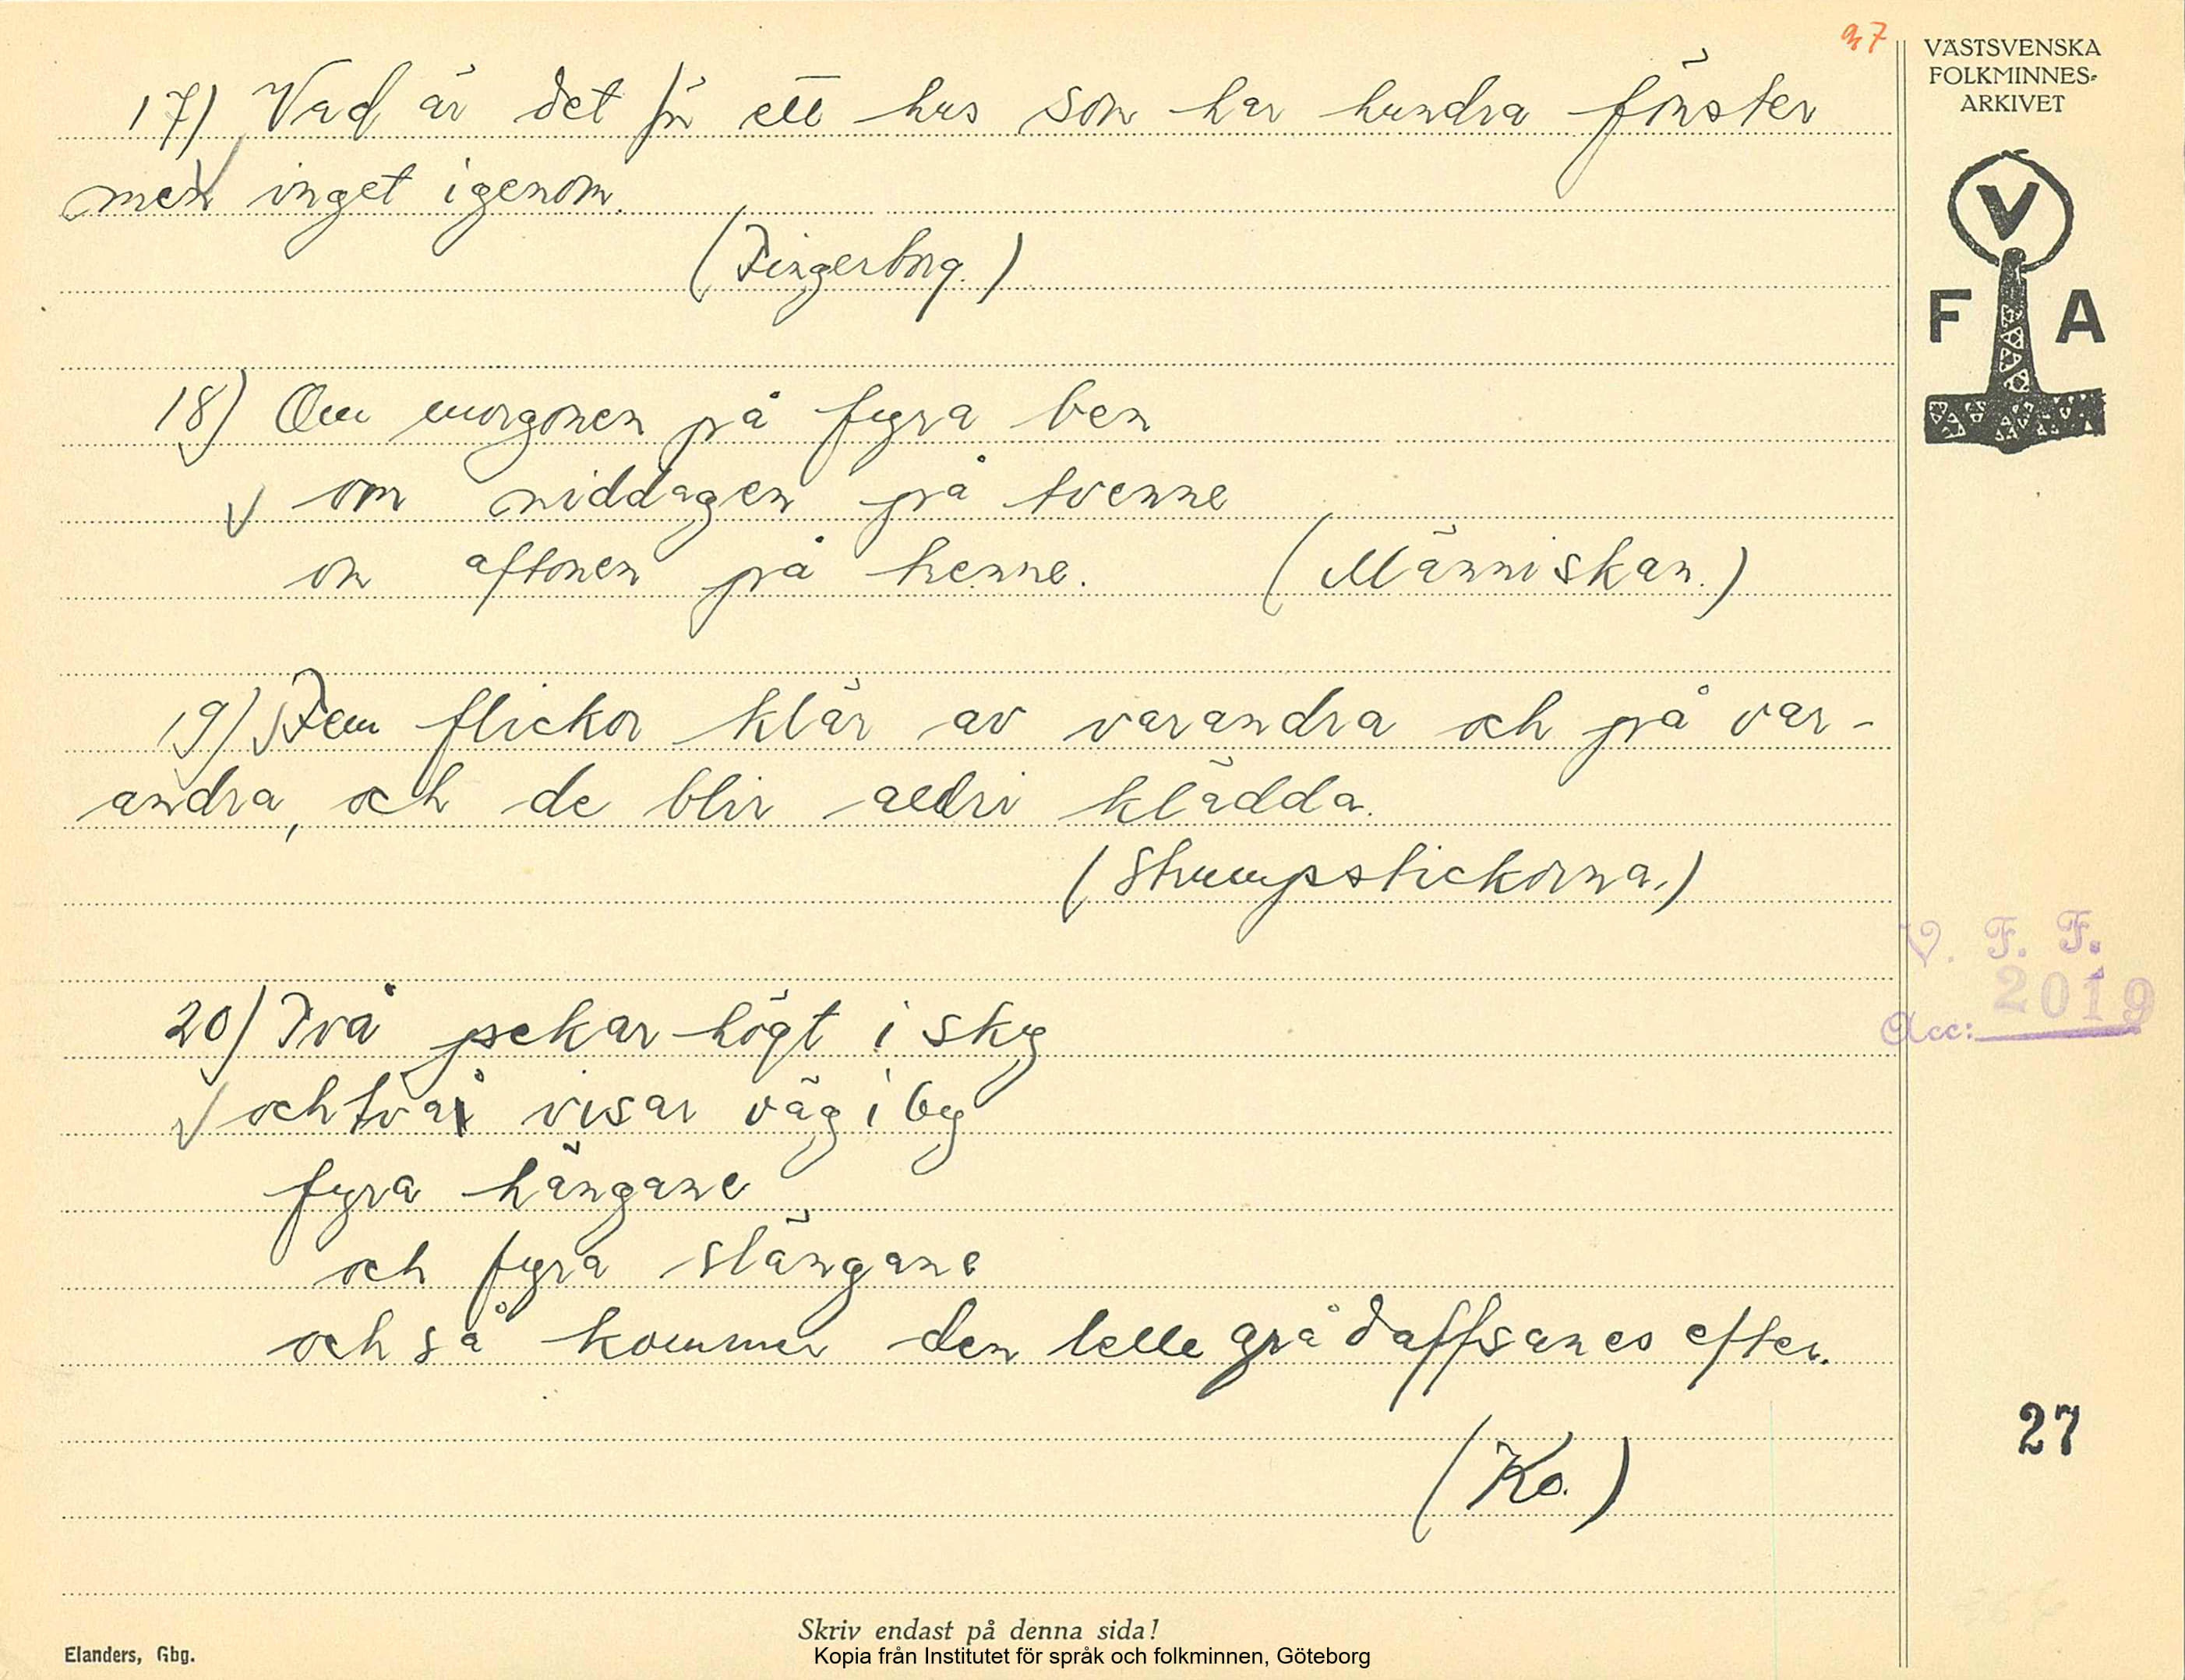 97
17) Vad är det för ett hus som har hundra fönster
men inget igenom.
(Fingerborg.)
18) Om morgonen på fyra ben
om middagen på tvenne
om aftonen på trenne. (Människan.)
19) Fem flickor klär av varandra och på var-
andra, och de blir aldri klädda.
(Strumpstickorna.)
20) Två pekar högt i sky
och två visar väg i by
fyra hängane
och fyra slängane
och så kommer den lelle grå daffsanes efter.
(Ko.)
VÄSTSVENSKA
FOLKMINNES-
ARKIVET
V
F A
V. F. F.
Acc: 2019
27
Skriv endast på denna sida!
Elanders, Gbg.
Kopia från Institutet för språk och folkminnen, Göteborg